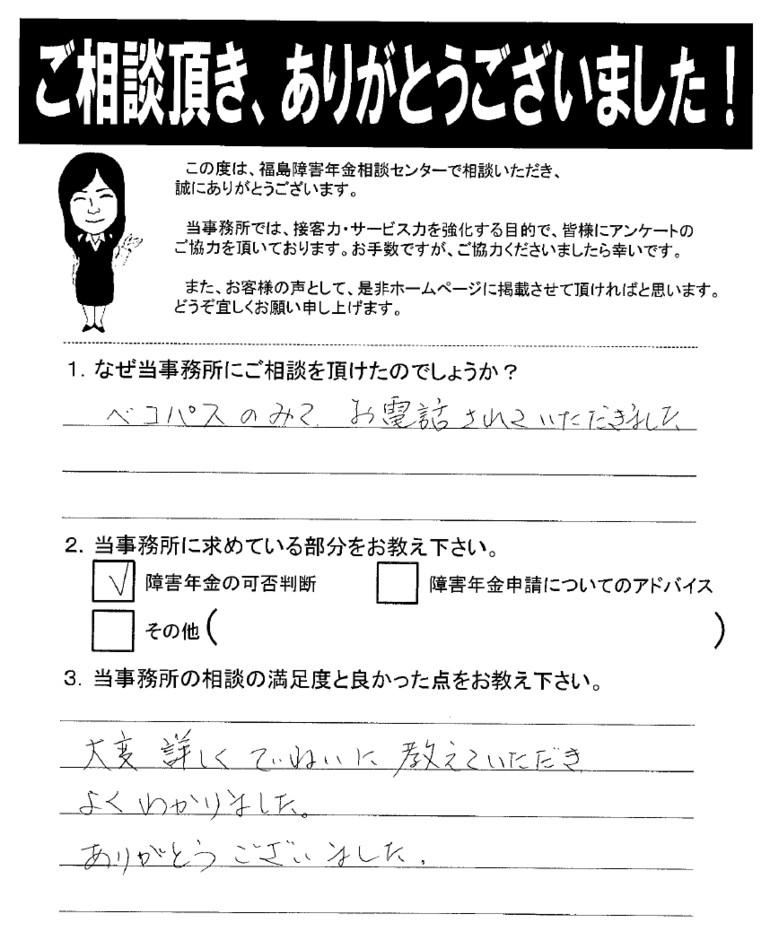 ご相談頂き、ありがとうございました！
この度は、福島障害年金相談センターで相談いただき、
誠にありがとうございます。
当事務所では、接客力・サービス力を強化する目的で、皆様にアンケートの
ご協力を頂いております。お手数ですが、ご協力くださいましたら幸いです。
また、お客様の声として、是非ホームページに掲載させて頂ければと思います。
どうぞ宜しくお願い申し上げます。
1. なぜ当事務所にご相談を頂けたのでしょうか？
ベコパスのみて、お電話されていただきました
2. 当事務所に求めている部分をお教え下さい。
✓ 障害年金の可否判断 障害年金申請についてのアドバイス
その他( )
3. 当事務所の相談の満足度と良かった点をお教え下さい。
大変 詳しく ていねいに 教えていただき
よくわかりました。
ありがとうございました.